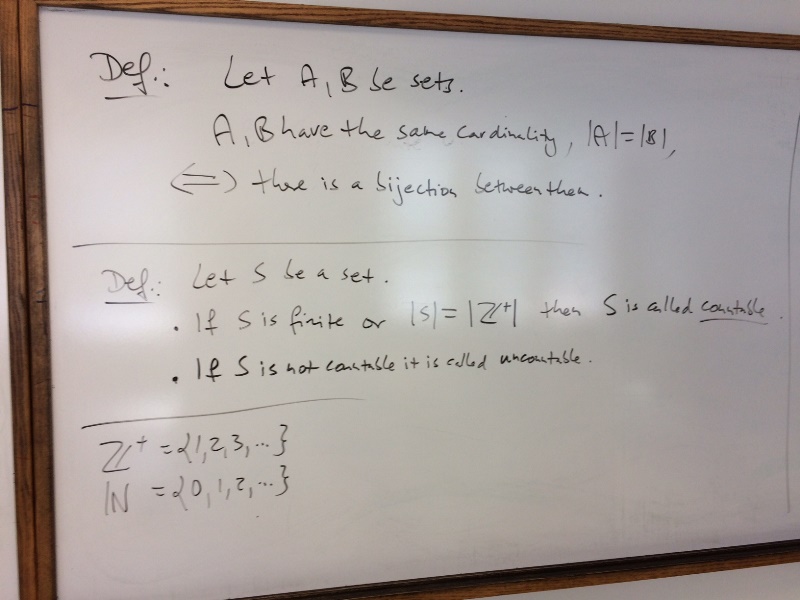 Def.: Let A, B be sets.
A, B have the same cardinality, |A|=|B|,
⟺ there is a bijection between them.
Def.: Let S be a set.
• If S is finite or |S|=|ℤ⁺| then S is called countable.
• If S is not countable it is called uncountable.
ℤ⁺ = {1, 2, 3, ...}
ℕ = {0, 1, 2, ...}